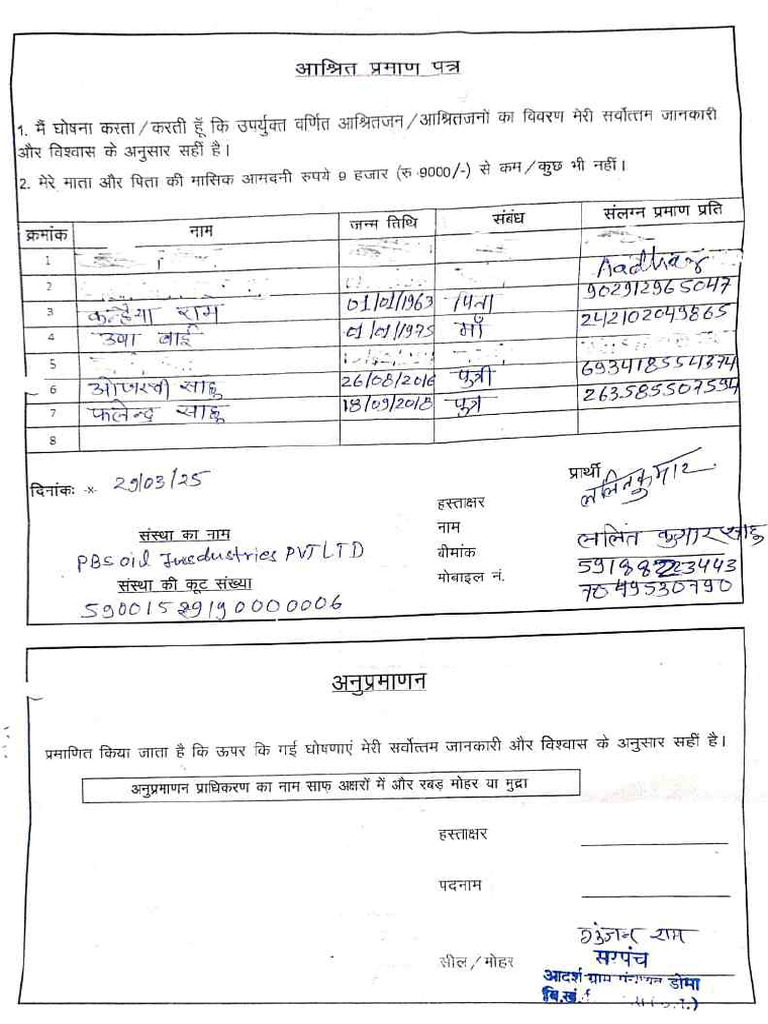 आश्रित प्रमाण पत्र
1. मैं घोषना करता/करती हूँ कि उपर्युक्त वर्णित आश्रितजन/आश्रितजनों का विवरण मेरी सर्वोत्तम जानकारी
और विश्वास के अनुसार सहीं है।
2. मेरे माता और पिता की मासिक आमदनी रुपये 9 हजार (रु 9000/-) से कम/कुछ भी नहीं।
क्रमांक नाम जन्म तिथि संबंध संलग्न प्रमाण प्रति
1
Aadhar
2
3 कन्हैया राम 01/01/1963 पिता 902912965047
4 उषा बाई 01/01/1975 माँ 242102049865
5
6 ओजस्वी साहू 26/08/2016 पुत्री 693418554374
7 फलेन्द्र साहू 18/09/2018 पुत्र 263585507594
8
दिनांकः -x- 29/03/25
प्रार्थी
हस्ताक्षर ललितकुमार
संस्था का नाम
नाम ललित कुमार साहू
PBS oil Jusdustries PVT LTD
बीमांक 5918823443
संस्था की कूट संख्या
मोबाइल नं. 7049530790
59001529190000006
अनुप्रमाणन
प्रमाणित किया जाता है कि ऊपर कि गई घोषणाएं मेरी सर्वोत्तम जानकारी और विश्वास के अनुसार सहीं है।
अनुप्रमाणन प्राधिकरण का नाम साफ़ अक्षरों में और रबड़ मोहर या मुद्रा
हस्ताक्षर
पदनाम
राम
सील/मोहर
सरपंच
आदर्श ग्राम डोमा
वि.खं.